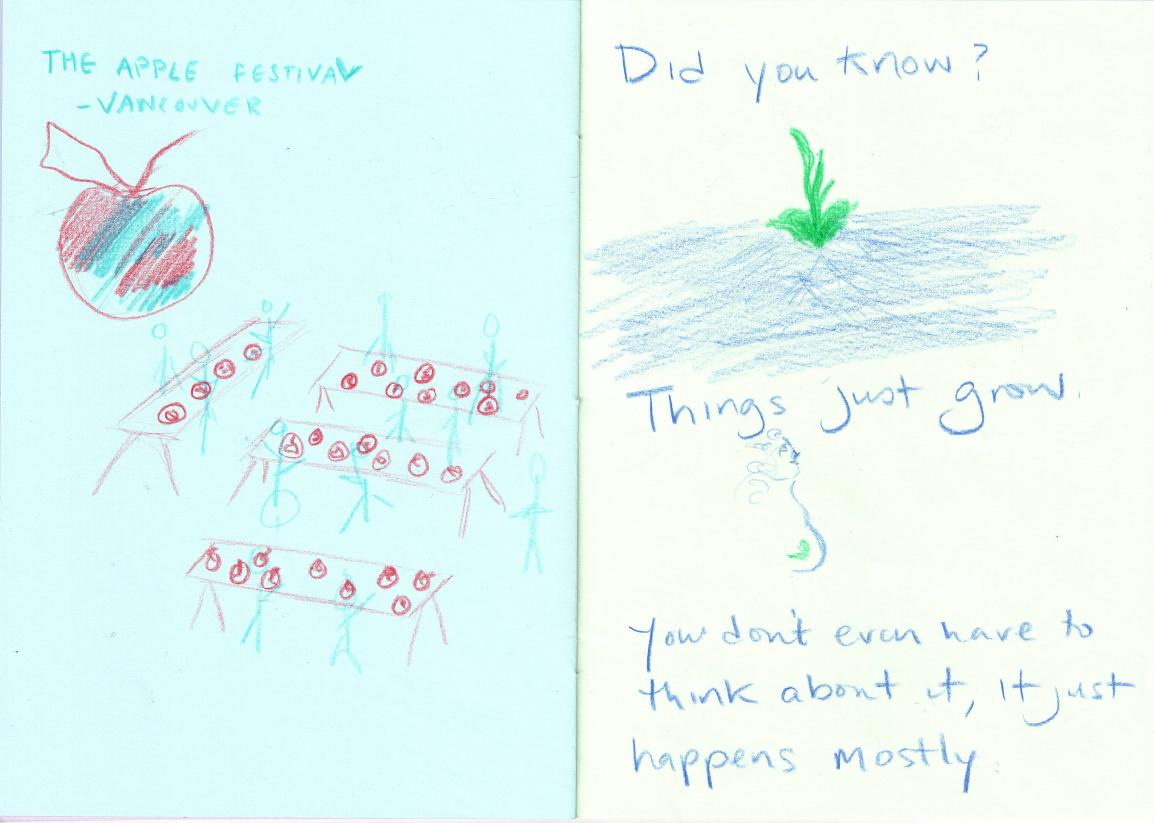 THE APPLE FESTIVAL
-VANCOUVER
Did you know?
Things just grow.
You don't even have to
think about it, it just
happens mostly